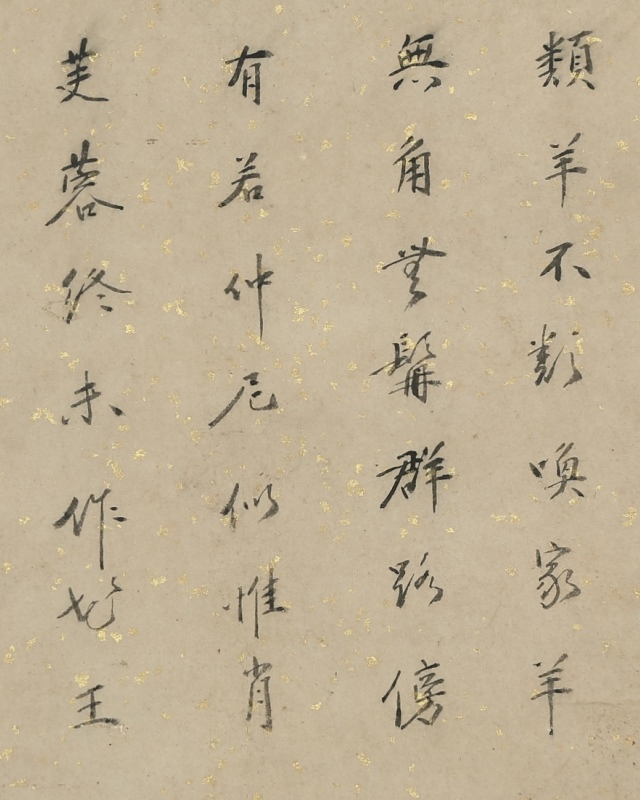 類羊不類喚家羊
無角無髯群路傍
有若仲尼似惟肖
芙蓉終未作花王